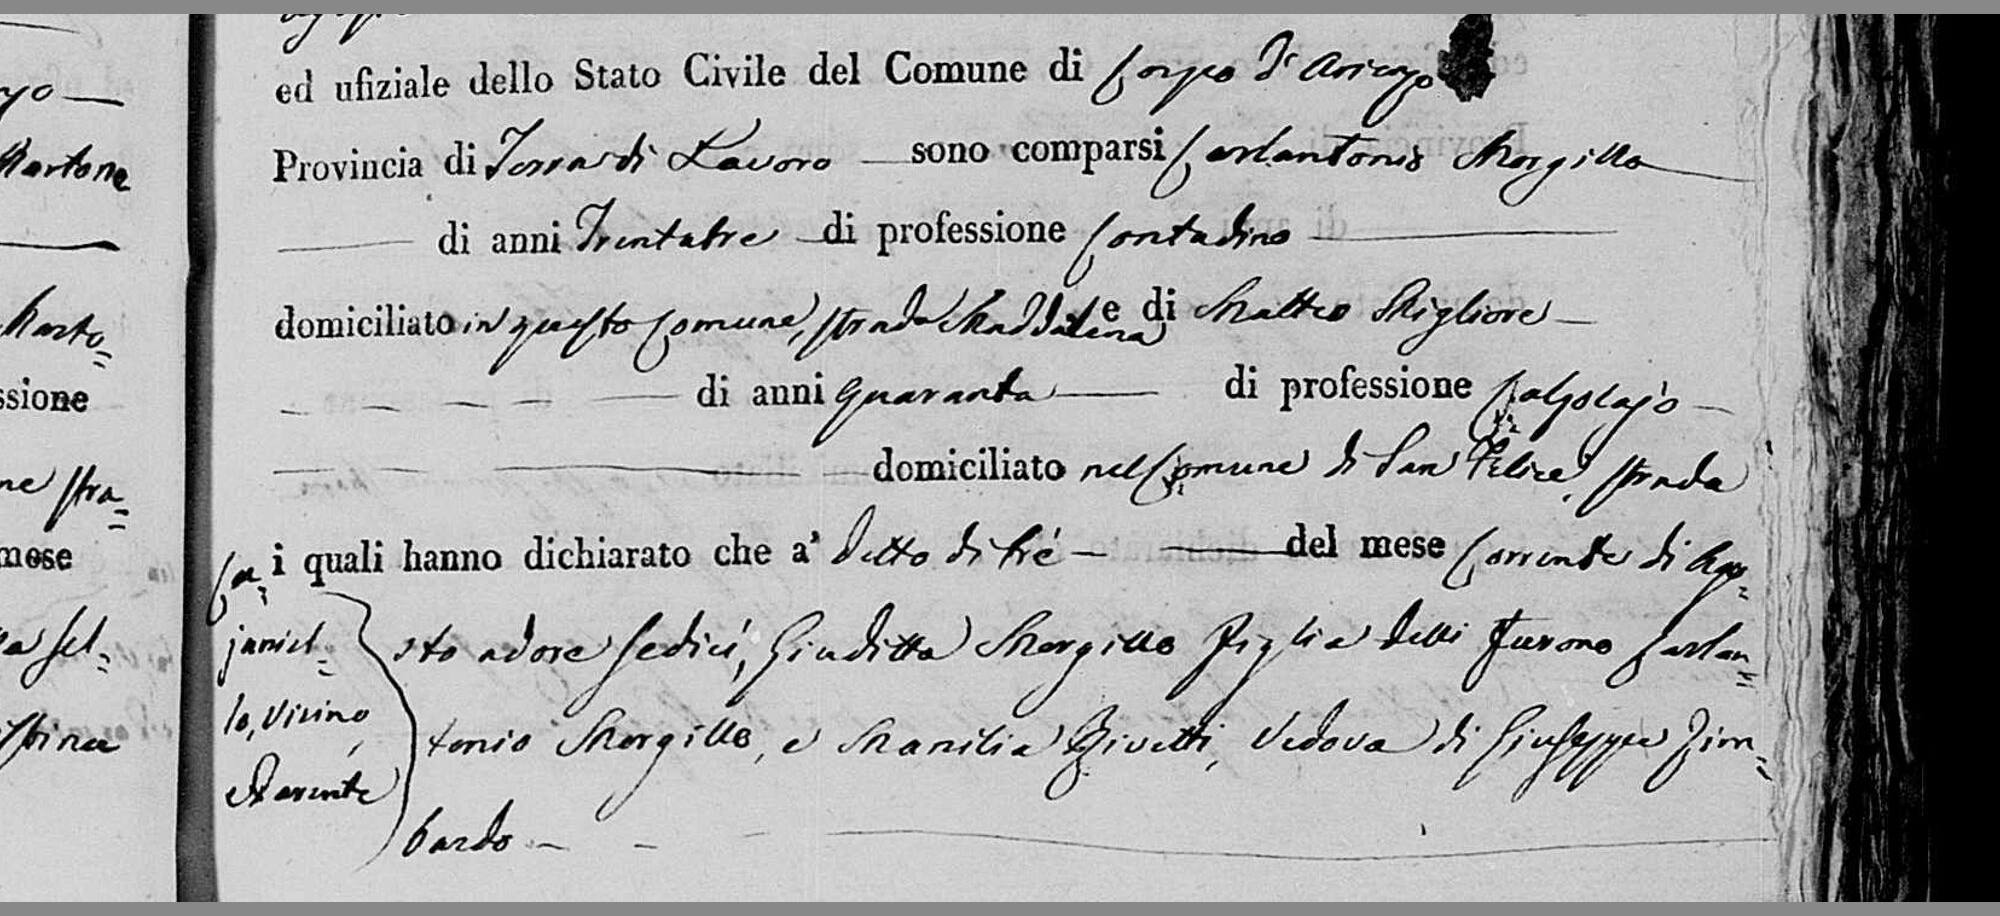 ed ufiziale dello Stato Civile del Comune di Corpo d'Arienzo
Provincia di Terra di Lavoro sono comparsi Carlantonio Morgillo
di anni Trentatre di professione Contadino
domiciliato in questo Comune, strada Maddalena e di Matteo Migliore
di anni quaranta di professione Calzolajo
domiciliato nel Comune di San Felice, strada
i quali hanno dichiarato che a' detto di tré del mese Corrente di Ago=
Ca=
janiel=
lo, vicino,
e Parente
sto ad ore sedici, Giuditta Morgillo Figlia delli furono Carlan=
tonio Morgillo, e Manilia Zivetti, Vedova di Giuseppe Zim=
bardo
yo
Martone
Marto=
ssione
ne stra=
mese
a fel=